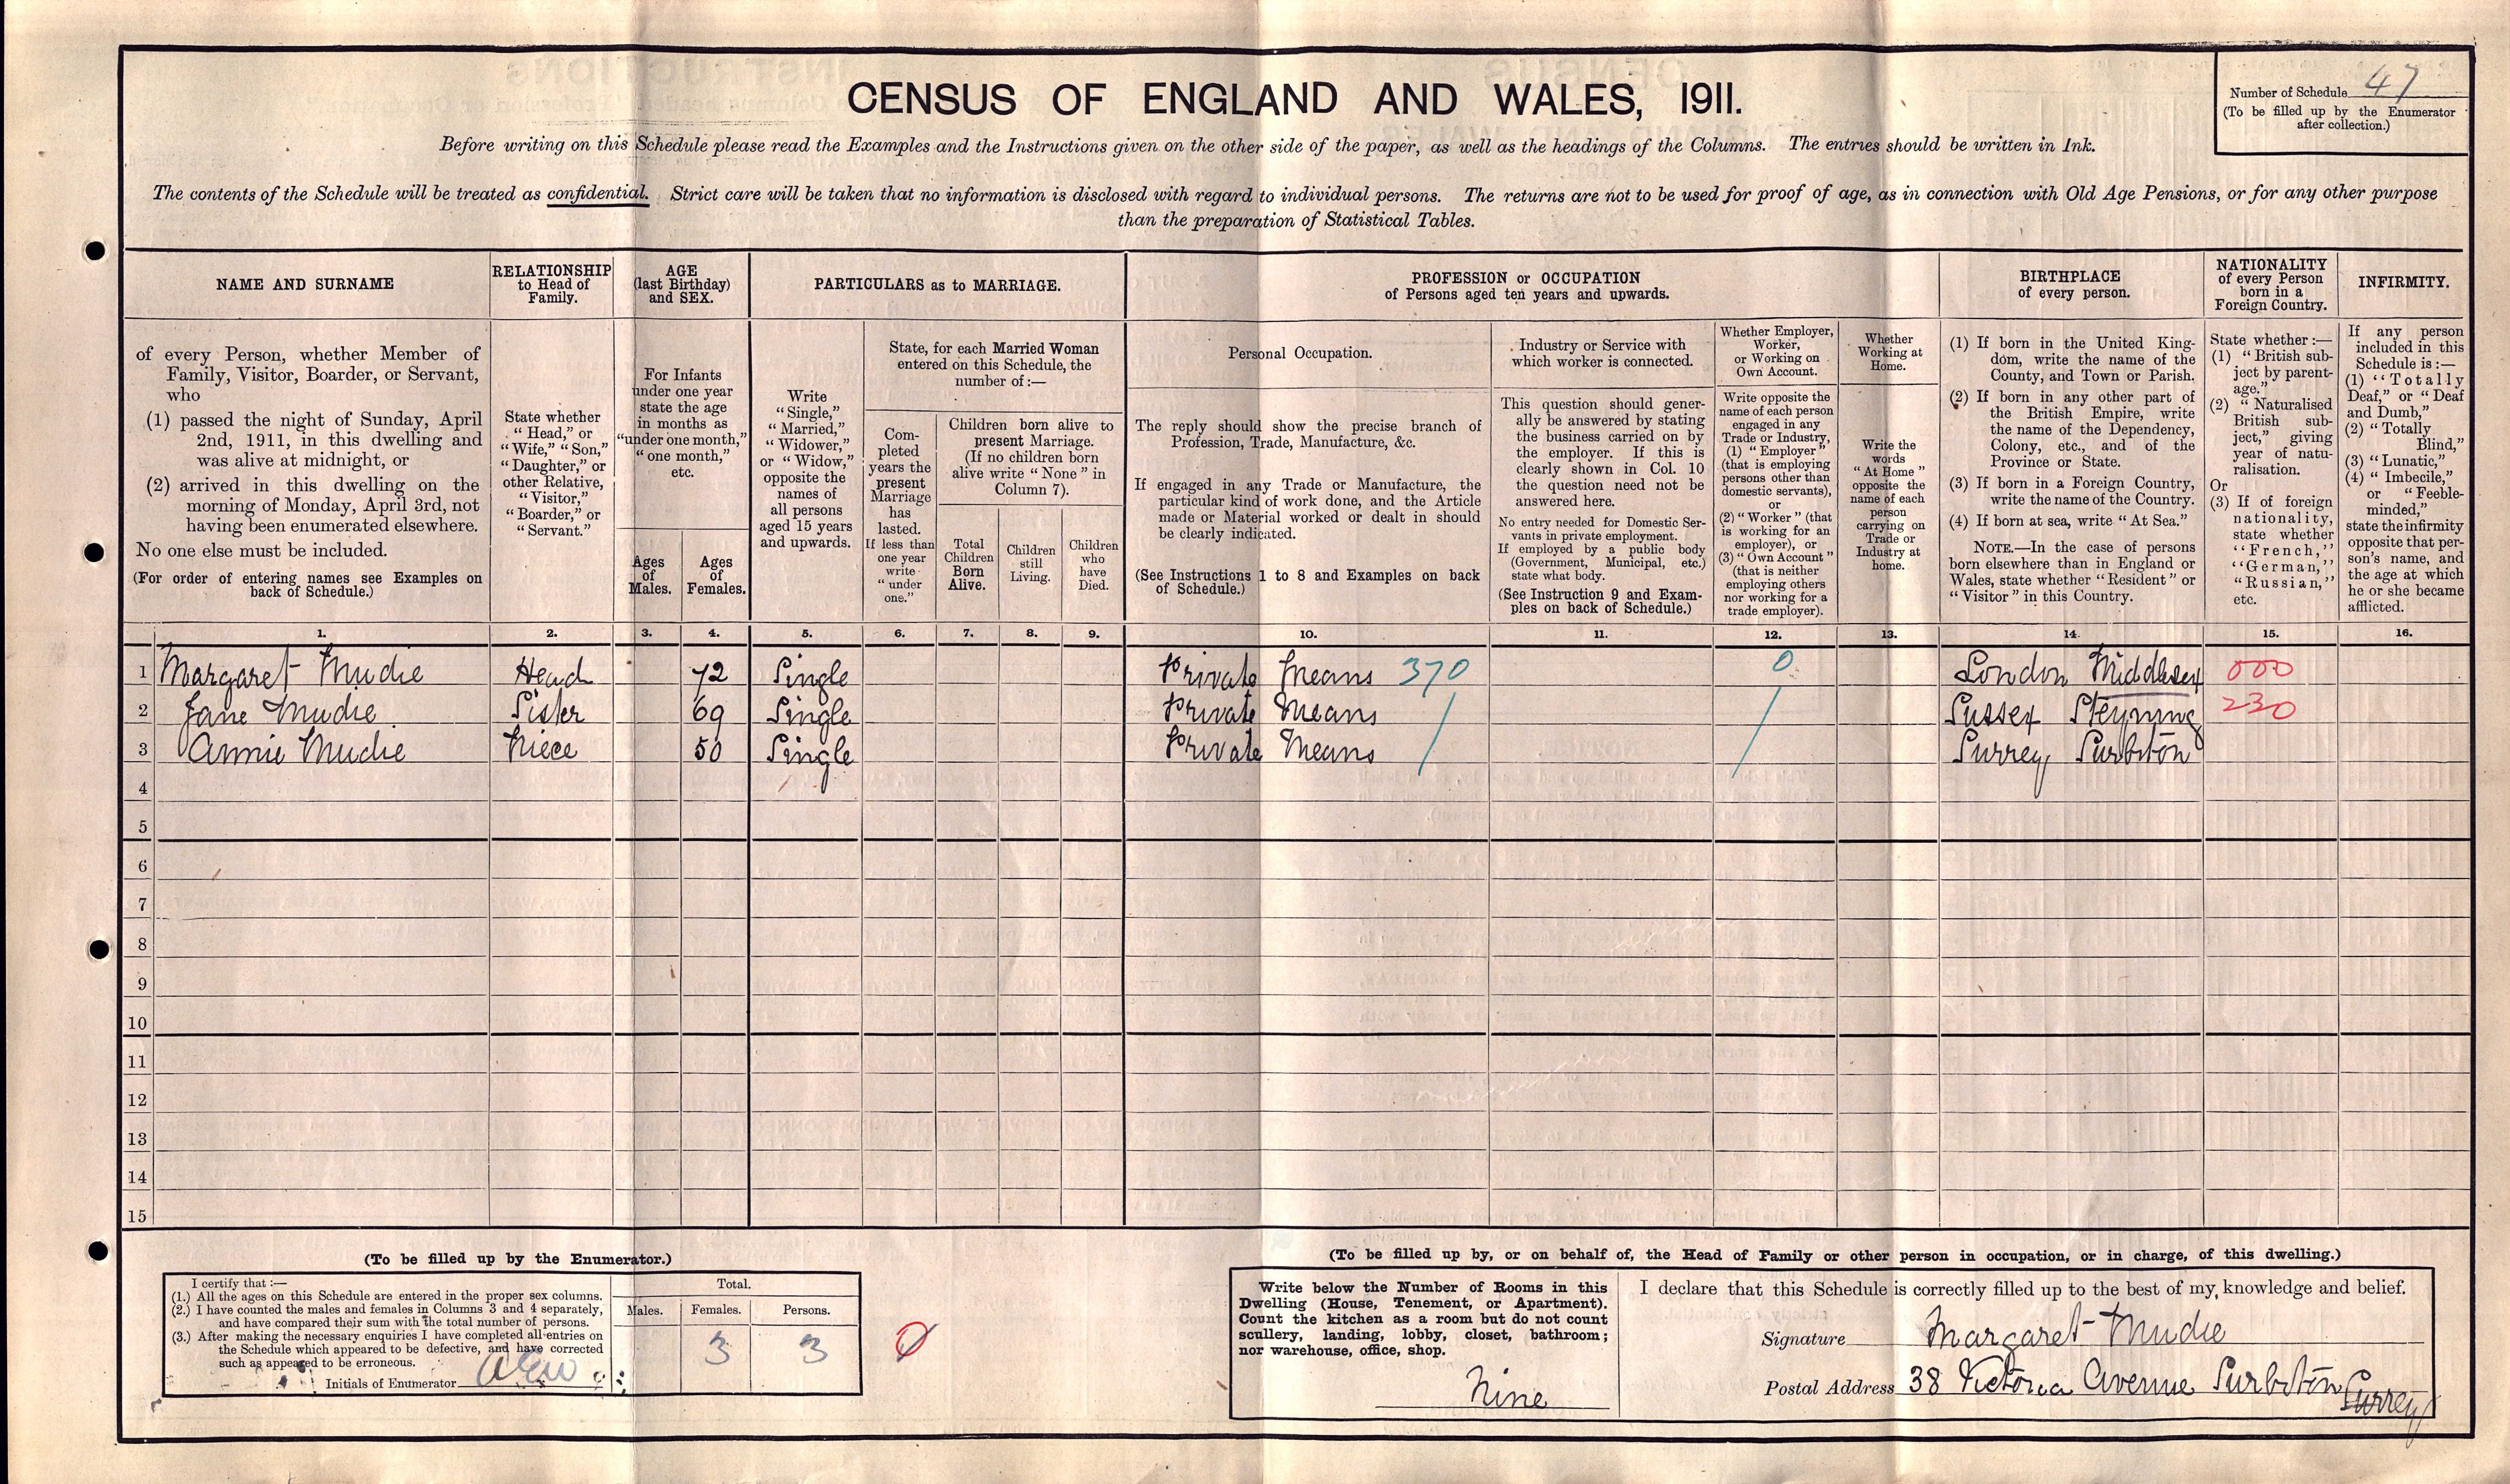 CENSUS OF ENGLAND AND WALES, 1911.
Number of Schedule 47
(To be filled up by the Enumerator
after collection.)
Before writing on this Schedule please read the Examples and the Instructions given on the other side of the paper, as well as the headings of the Columns. The entries should be written in Ink.
The contents of the Schedule will be treated as confidential. Strict care will be taken that no information is disclosed with regard to individual persons. The returns are not to be used for proof of age, as in connection with Old Age Pensions, or for any other purpose
than the preparation of Statistical Tables.
NAME AND SURNAME
of every Person, whether Member of
Family, Visitor, Boarder, or Servant,
who
(1) passed the night of Sunday, April
2nd, 1911, in this dwelling and
was alive at midnight, or
(2) arrived in this dwelling on the
morning of Monday, April 3rd, not
having been enumerated elsewhere.
No one else must be included.
(For order of entering names see Examples on
back of Schedule.)
RELATIONSHIP
to Head of
Family.
State whether
"Head," or
"Wife," "Son,"
"Daughter," or
other Relative,
"Visitor,"
"Boarder," or
"Servant."
AGE
(last Birthday)
and SEX.
For Infants
under one year
state the age
in months as
"under one month,"
"one month,"
etc.
Ages
of
Males.
Ages
of
Females.
PARTICULARS as to MARRIAGE.
Write
"Single,"
"Married,"
"Widower,"
or "Widow,"
opposite the
names of
all persons
aged 15 years
and upwards.
State, for each Married Woman
entered on this Schedule, the
number of:—
Com-
pleted
years the
present
Marriage
has
lasted.
If less than
one year
write
"under
one."
Children born alive to
present Marriage.
(If no children born
alive write "None" in
Column 7).
Total
Children
Born
Alive.
Children
still
Living.
Children
who
have
Died.
PROFESSION or OCCUPATION
of Persons aged ten years and upwards.
Personal Occupation.
The reply should show the precise branch of
Profession, Trade, Manufacture, &c.
If engaged in any Trade or Manufacture, the
particular kind of work done, and the Article
made or Material worked or dealt in should
be clearly indicated.
(See Instructions 1 to 8 and Examples on back
of Schedule.)
Industry or Service with
which worker is connected.
This question should gener-
ally be answered by stating
the business carried on by
the employer. If this is
clearly shown in Col. 10
the question need not be
answered here.
No entry needed for Domestic Ser-
vants in private employment.
If employed by a public body
(Government, Municipal, etc.)
state what body.
(See Instruction 9 and Exam-
ples on back of Schedule.)
Whether Employer,
Worker,
or Working on
Own Account.
Write opposite the
name of each person
engaged in any
Trade or Industry,
(1) "Employer"
(that is employing
persons other than
domestic servants),
or
(2) "Worker" (that
is working for an
employer), or
(3) "Own Account"
(that is neither
employing others
nor working for a
trade employer).
Whether
Working at
Home.
Write the
words
"At Home"
opposite the
name of each
person
carrying on
Trade or
Industry at
home.
BIRTHPLACE
of every person.
(1) If born in the United King-
dom, write the name of the
County, and Town or Parish.
(2) If born in any other part of
the British Empire, write
the name of the Dependency,
Colony, etc., and of the
Province or State.
(3) If born in a Foreign Country,
write the name of the Country.
(4) If born at sea, write "At Sea."
NOTE.—In the case of persons
born elsewhere than in England or
Wales, state whether "Resident" or
"Visitor" in this Country.
NATIONALITY
of every Person
born in a
Foreign Country.
State whether:—
(1) "British sub-
ject by parent-
age."
(2) "Naturalised
British sub-
ject," giving
year of natu-
ralisation.
Or
(3) If of foreign
nationality,
state whether
"French,"
"German,"
"Russian,"
etc.
INFIRMITY.
If any person
included in this
Schedule is:—
(1) "Totally
Deaf," or "Deaf
and Dumb,"
(2) "Totally
Blind,"
(3) "Lunatic,"
(4) "Imbecile,"
or "Feeble-
minded,"
state the infirmity
opposite that per-
son's name, and
the age at which
he or she became
afflicted.
1. 2. 3. 4. 5. 6. 7. 8. 9. 10. 11. 12. 13. 14. 15. 16.
1 Margaret Mudie Head 72 Single Private Means 370 0 London Middlesex 000
2 Jane Mudie Sister 69 Single Private Means Sussex Steyning 230
3 Annie Mudie Niece 50 Single Private Means Surrey Surbiton
4
5
6
7
8
9
10
11
12
13
14
15
(To be filled up by the Enumerator.)
I certify that:—
(1.) All the ages on this Schedule are entered in the proper sex columns.
(2.) I have counted the males and females in Columns 3 and 4 separately,
and have compared their sum with the total number of persons.
(3.) After making the necessary enquiries I have completed all entries on
the Schedule which appeared to be defective, and have corrected
such as appeared to be erroneous.
Initials of Enumerator
Total.
Males. Females. Persons.
3 3
(To be filled up by, or on behalf of, the Head of Family or other person in occupation, or in charge, of this dwelling.)
Write below the Number of Rooms in this
Dwelling (House, Tenement, or Apartment).
Count the kitchen as a room but do not count
scullery, landing, lobby, closet, bathroom;
nor warehouse, office, shop.
Nine
I declare that this Schedule is correctly filled up to the best of my knowledge and belief.
Signature Margaret Mudie
Postal Address 38 Victoria Avenue Surbiton Surrey